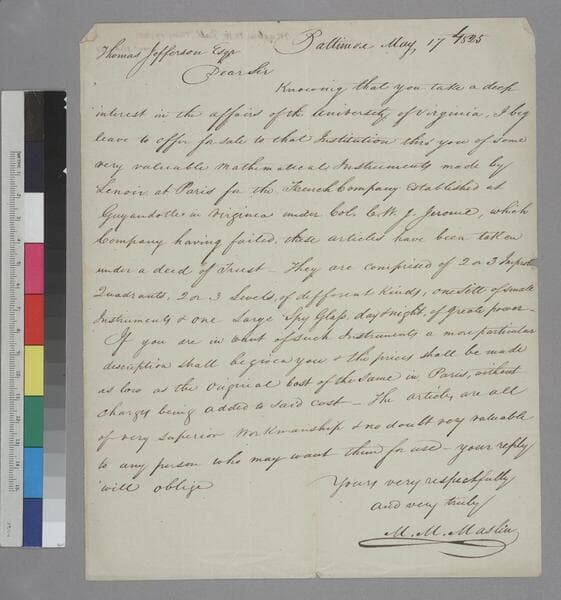 Baltimore May, 17th 1825
Thomas Jefferson Esqr
Dear Sir
Knowing that you take a deep
interest in the affairs of the University of Virginia, I beg
leave to offer for sale to that Institution thro you of some
very valuable Mathematical Instruments made by
Lenoir at Paris for the French Company Established at
Guyandotte in Virginia under Col. C. W. J. Jerome, which
Company having failed, these articles have been taken
under a deed of Trust - They are comprised of 2 or 3 Improd
Quadrants, 2 or 3 Levels, of different kinds, one Sett of small
Instruments & one Large Spy Glass, day & night, of great power -
If you are in want of such Instruments a more particular
desciption shall be given you & the prices shall be made
as low as the Original Cost of the Same in Paris, without
Charges being added to said cost - The articles are all
of very superior Workmanship & no doubt very valuable
to any person who may want them for use - your reply
will oblige
Yours very respectfully
and very truly
M. M. Maslin